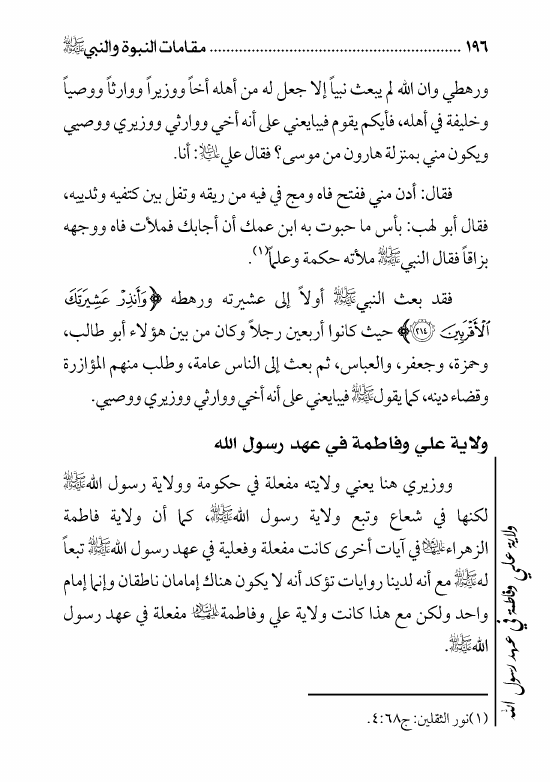 ١٩٦ ............................................................ مقامات النبوة والنبي ﷺ
ورهطي وان الله لم يبعث نبياً إلا جعل له من أهله أخاً ووزيراً ووارثاً ووصياً
وخليفة في أهله، فأيكم يقوم فيبايعني على أنه أخي ووارثي ووزيري ووصيي
ويكون مني بمنزلة هارون من موسى؟ فقال علي عليه السلام: أنا.
فقال: أدن مني ففتح فاه ومج في فيه من ريقه وتفل بين كتفيه وثدييه،
فقال أبو لهب: بأس ما حبوت به ابن عمك أن أجابك فملأت فاه ووجهه
بزاقاً فقال النبي ﷺ ملأته حكمة وعلماً(١).
فقد بعث النبي ﷺ أولاً إلى عشيرته ورهطه ﴿وَأَنذِرْ عَشِيرَتَكَ
الْأَقْرَبِينَ ٢١٤﴾ حيث كانوا أربعين رجلاً وكان من بين هؤلاء أبو طالب،
وحمزة، وجعفر، والعباس، ثم بعث إلى الناس عامة، وطلب منهم المؤازرة
وقضاء دينه، كما يقول ﷺ فيبايعني على أنه أخي ووارثي ووزيري ووصيي.
ولاية علي وفاطمة في عهد رسول الله
ووزيري هنا يعني ولايته مفعلة في حكومة وولاية رسول الله ﷺ
لكنها في شعاع وتبع ولاية رسول الله ﷺ، كما أن ولاية فاطمة
الزهراء عليها السلام في آيات أخرى كانت مفعلة وفعلية في عهد رسول الله ﷺ تبعاً
له ﷺ مع أنه لدينا روايات تؤكد أنه لا يكون هناك إمامان ناطقان وإنما إمام
واحد ولكن مع هذا كانت ولاية علي وفاطمة عليهما السلام مفعلة في عهد رسول
الله ﷺ.
ولاية علي وفاطمة في عهد رسول الله
(١)نور الثقلين: ج٤:٦٨.